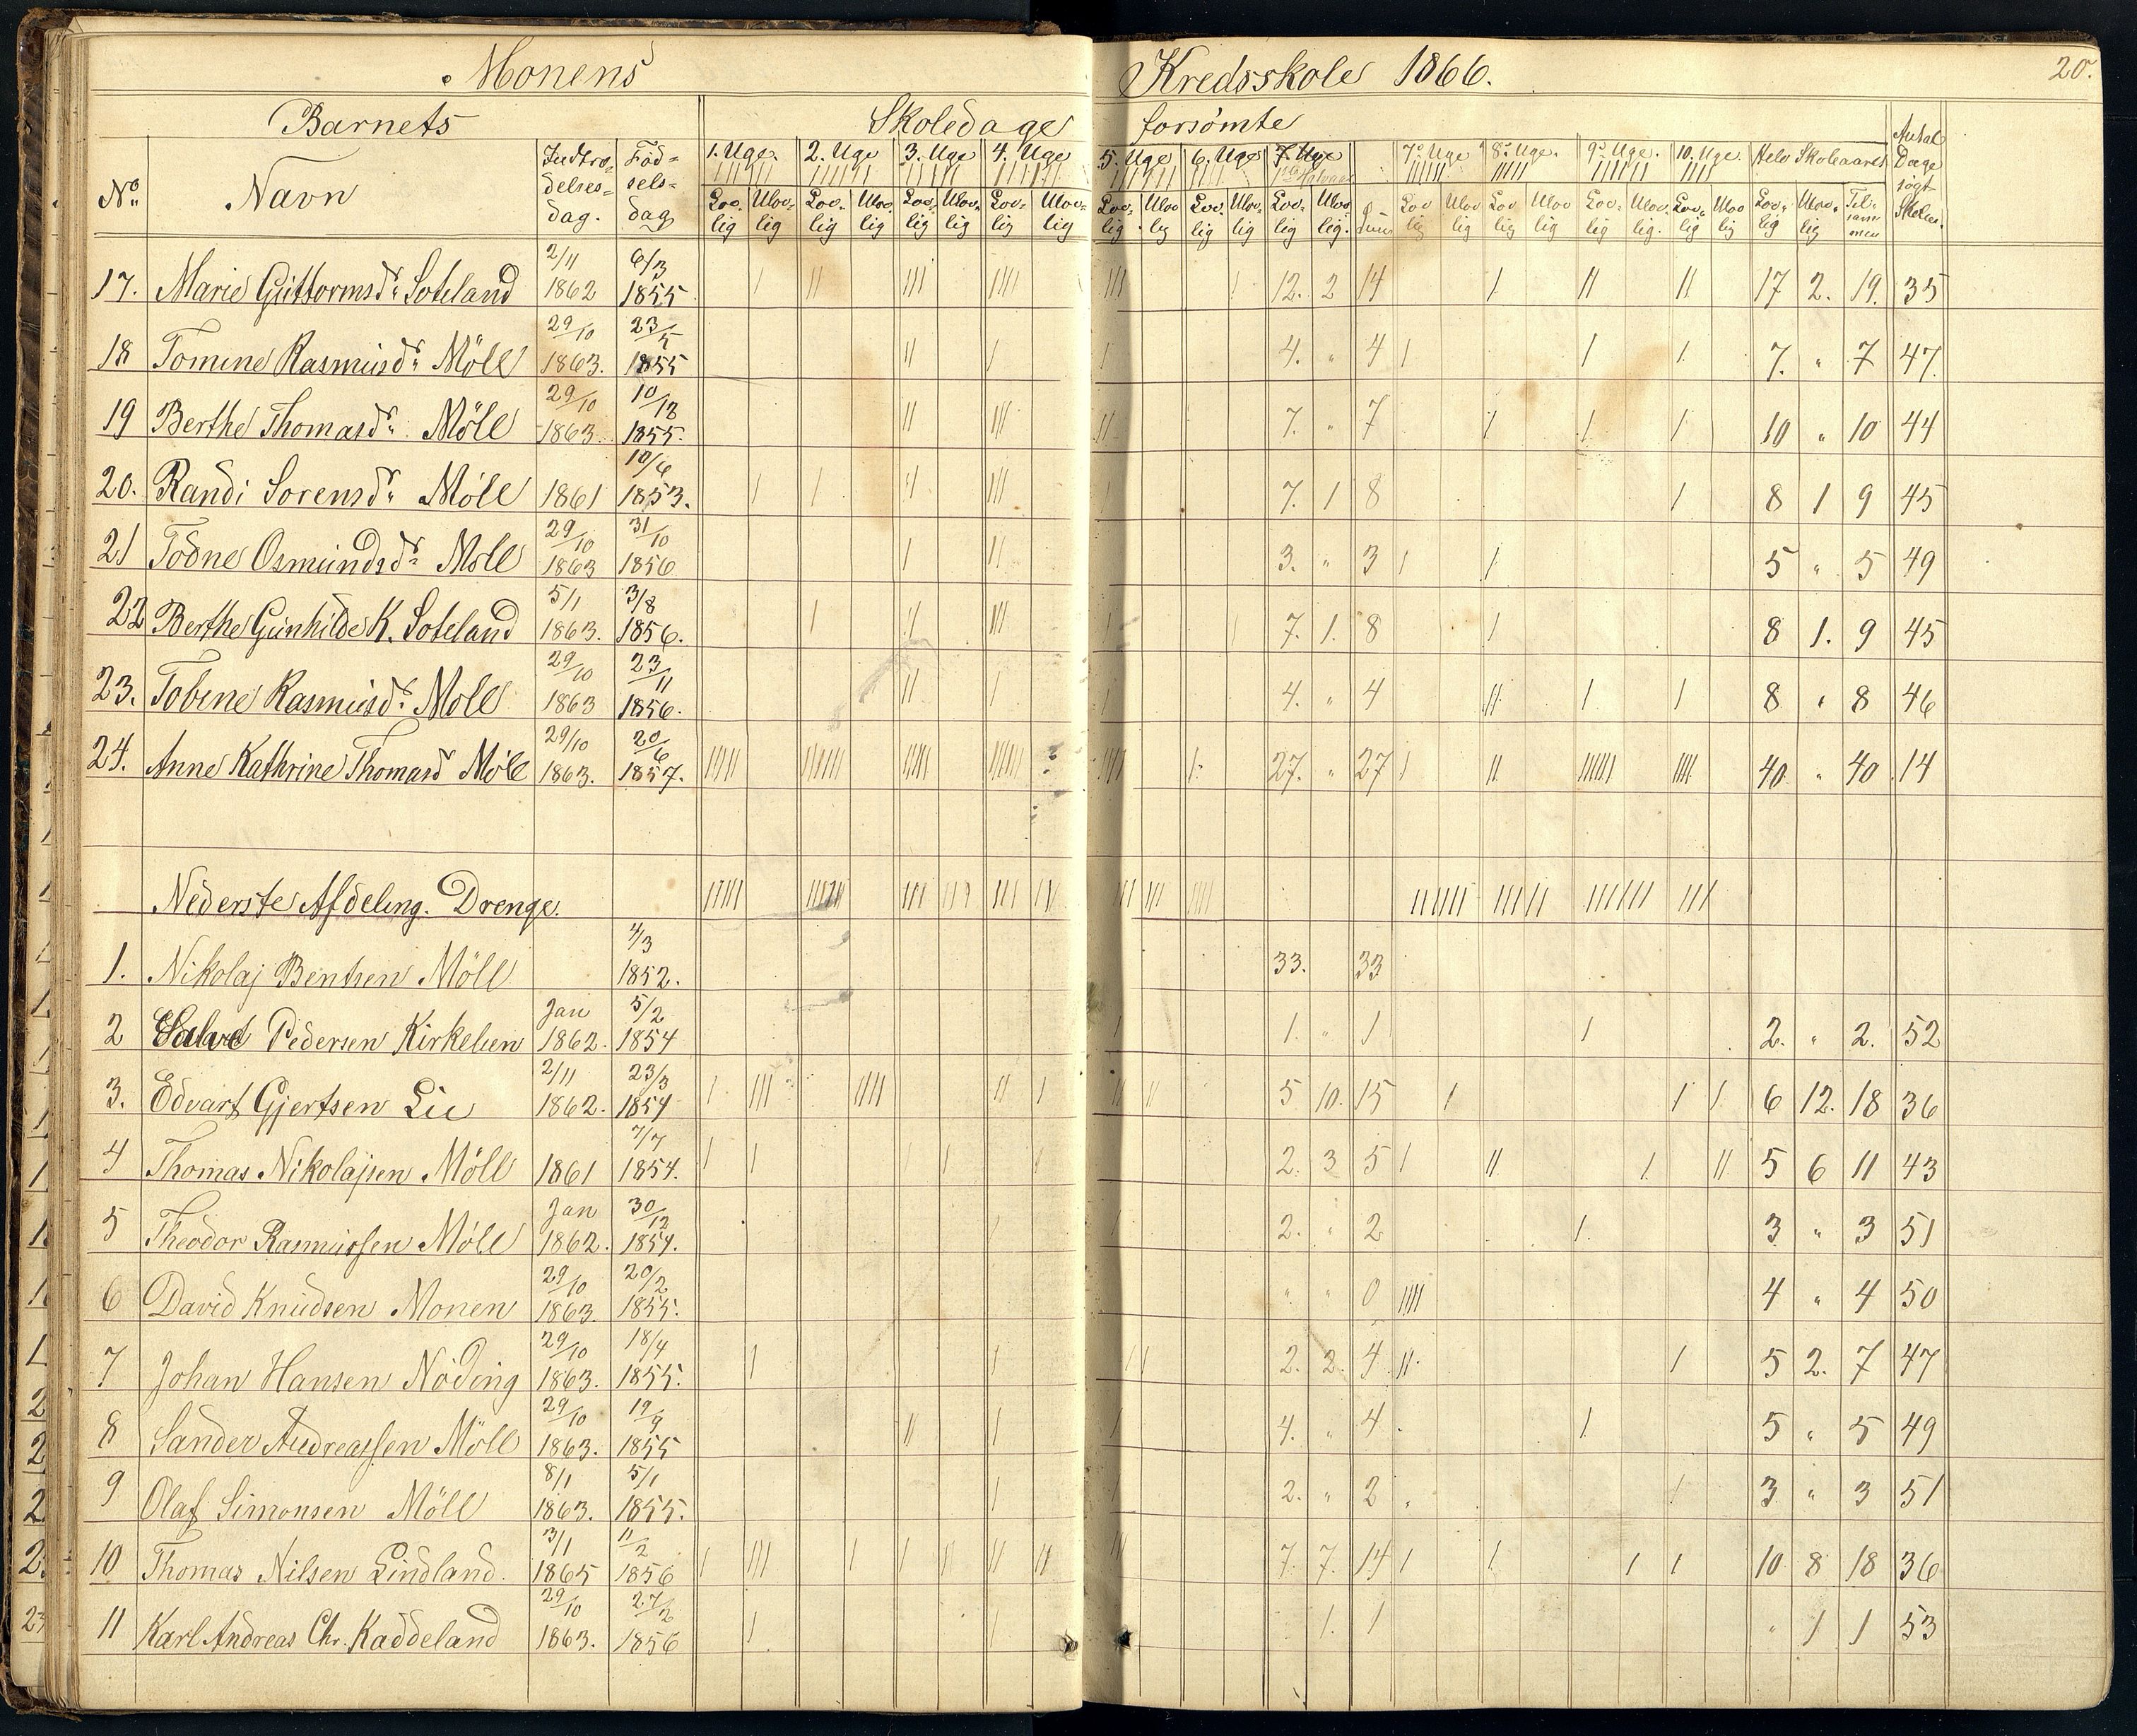 Monens Kredsskole 1866. 20.
Barnets Skoledage forsømte Antal Dage søgt Skolen.
No Navn Indtræ- delses- dag. Fød- sels- dag 1. Uge. 2. Uge 3. Uge 4. Uge 5. Uge 6. Uge 7. Uge 7de Uge 8de Uge. 9de Uge. 10. Uge. Hele Skoleaaret
Lov- lig Ulov- lig Lov- lig Ulov- lig Lov- lig Ulov- lig Lov- lig Ulov- lig Lov- lig Ulov- lig Lov- lig Ulov- lig Lov- lig Ulov- lig Lov- lig Ulov- lig Lov- lig Ulov- lig Lov- lig Ulov- lig Lov- lig Ulov- lig Lov- lig Ulov- lig Til- sam- men
17. Marie Guttormsdr. Soteland 2/11 1862 6/3 1855 12. 2 14 17 2. 19. 35
18 Tomine Rasmusdr. Möll 29/10 1863. 23/5 1855 4. " 4 7. " 7 47.
19 Berthe Thomasdr. Möll 29/10 1863. 10/12 1855. 7. " 7 10 " 10 44
20. Randi Sorensdr. Möll 1861 10/6 1853. 7. 1 8 8 1 9 45
21 Todne Osmundsdr. Möll 29/10 1863 31/10 1856 3. " 3 5 " 5 49
22 Berthe Gunhilde K. Soteland 5/1 1863. 3/8 1856. 7. 1. 8 8 1. 9 45
23. Tobine Rasmusdr. Moll 29/10 1863 23/11 1856. 4. " 4 8 " 8 46
24. Anne Kathrine Thomasd Möll 29/10 1863. 20/6 1857. 27. " 27 40 " 40 14
Nederste Afdeling. Drenge.
1. Nikolaj Bentsen Möll 4/3 1852. 33. 33
2 Salve Pedersen Kirkelien Jan 1862. 5/2 1854 1. " 1 2. " 2. 52
3. Edvart Gjertsen Lie 2/11 1862. 23/3 1854 5 10. 15 6 12. 18 36
4 Thomas Nikolajsen Möll 1861 7/7 1854. 2. 3 5 5 6 11 43
5 Theodor Rasmussen Möll Jan 1862. 30/12 1854. 2. " 2 3 " 3 51
6 David Knudsen Monen 29/10 1863. 20/2 1855. " " 0 4 " 4 50
7 Johan Hansen Nöding 29/10 1863. 18/4 1855. 2. 2. 4 5 2. 7 47
8 Sander Andreassen Möll 29/10 1863. 19/9 1855 4. " 4 5 " 5 49
9 Olaf Simonsen Möll 8/1 1863. 5/1 1855. 2. " 2 3 " 3 51
10 Thomas Nilsen Lindland. 3/1 1865 11/2 1856 7. 7. 14 10 8 18 36
11 Karl Andreas Chr. Kaddeland 29/10 1863. 27/2 1856 1. 1 " 1 1 53